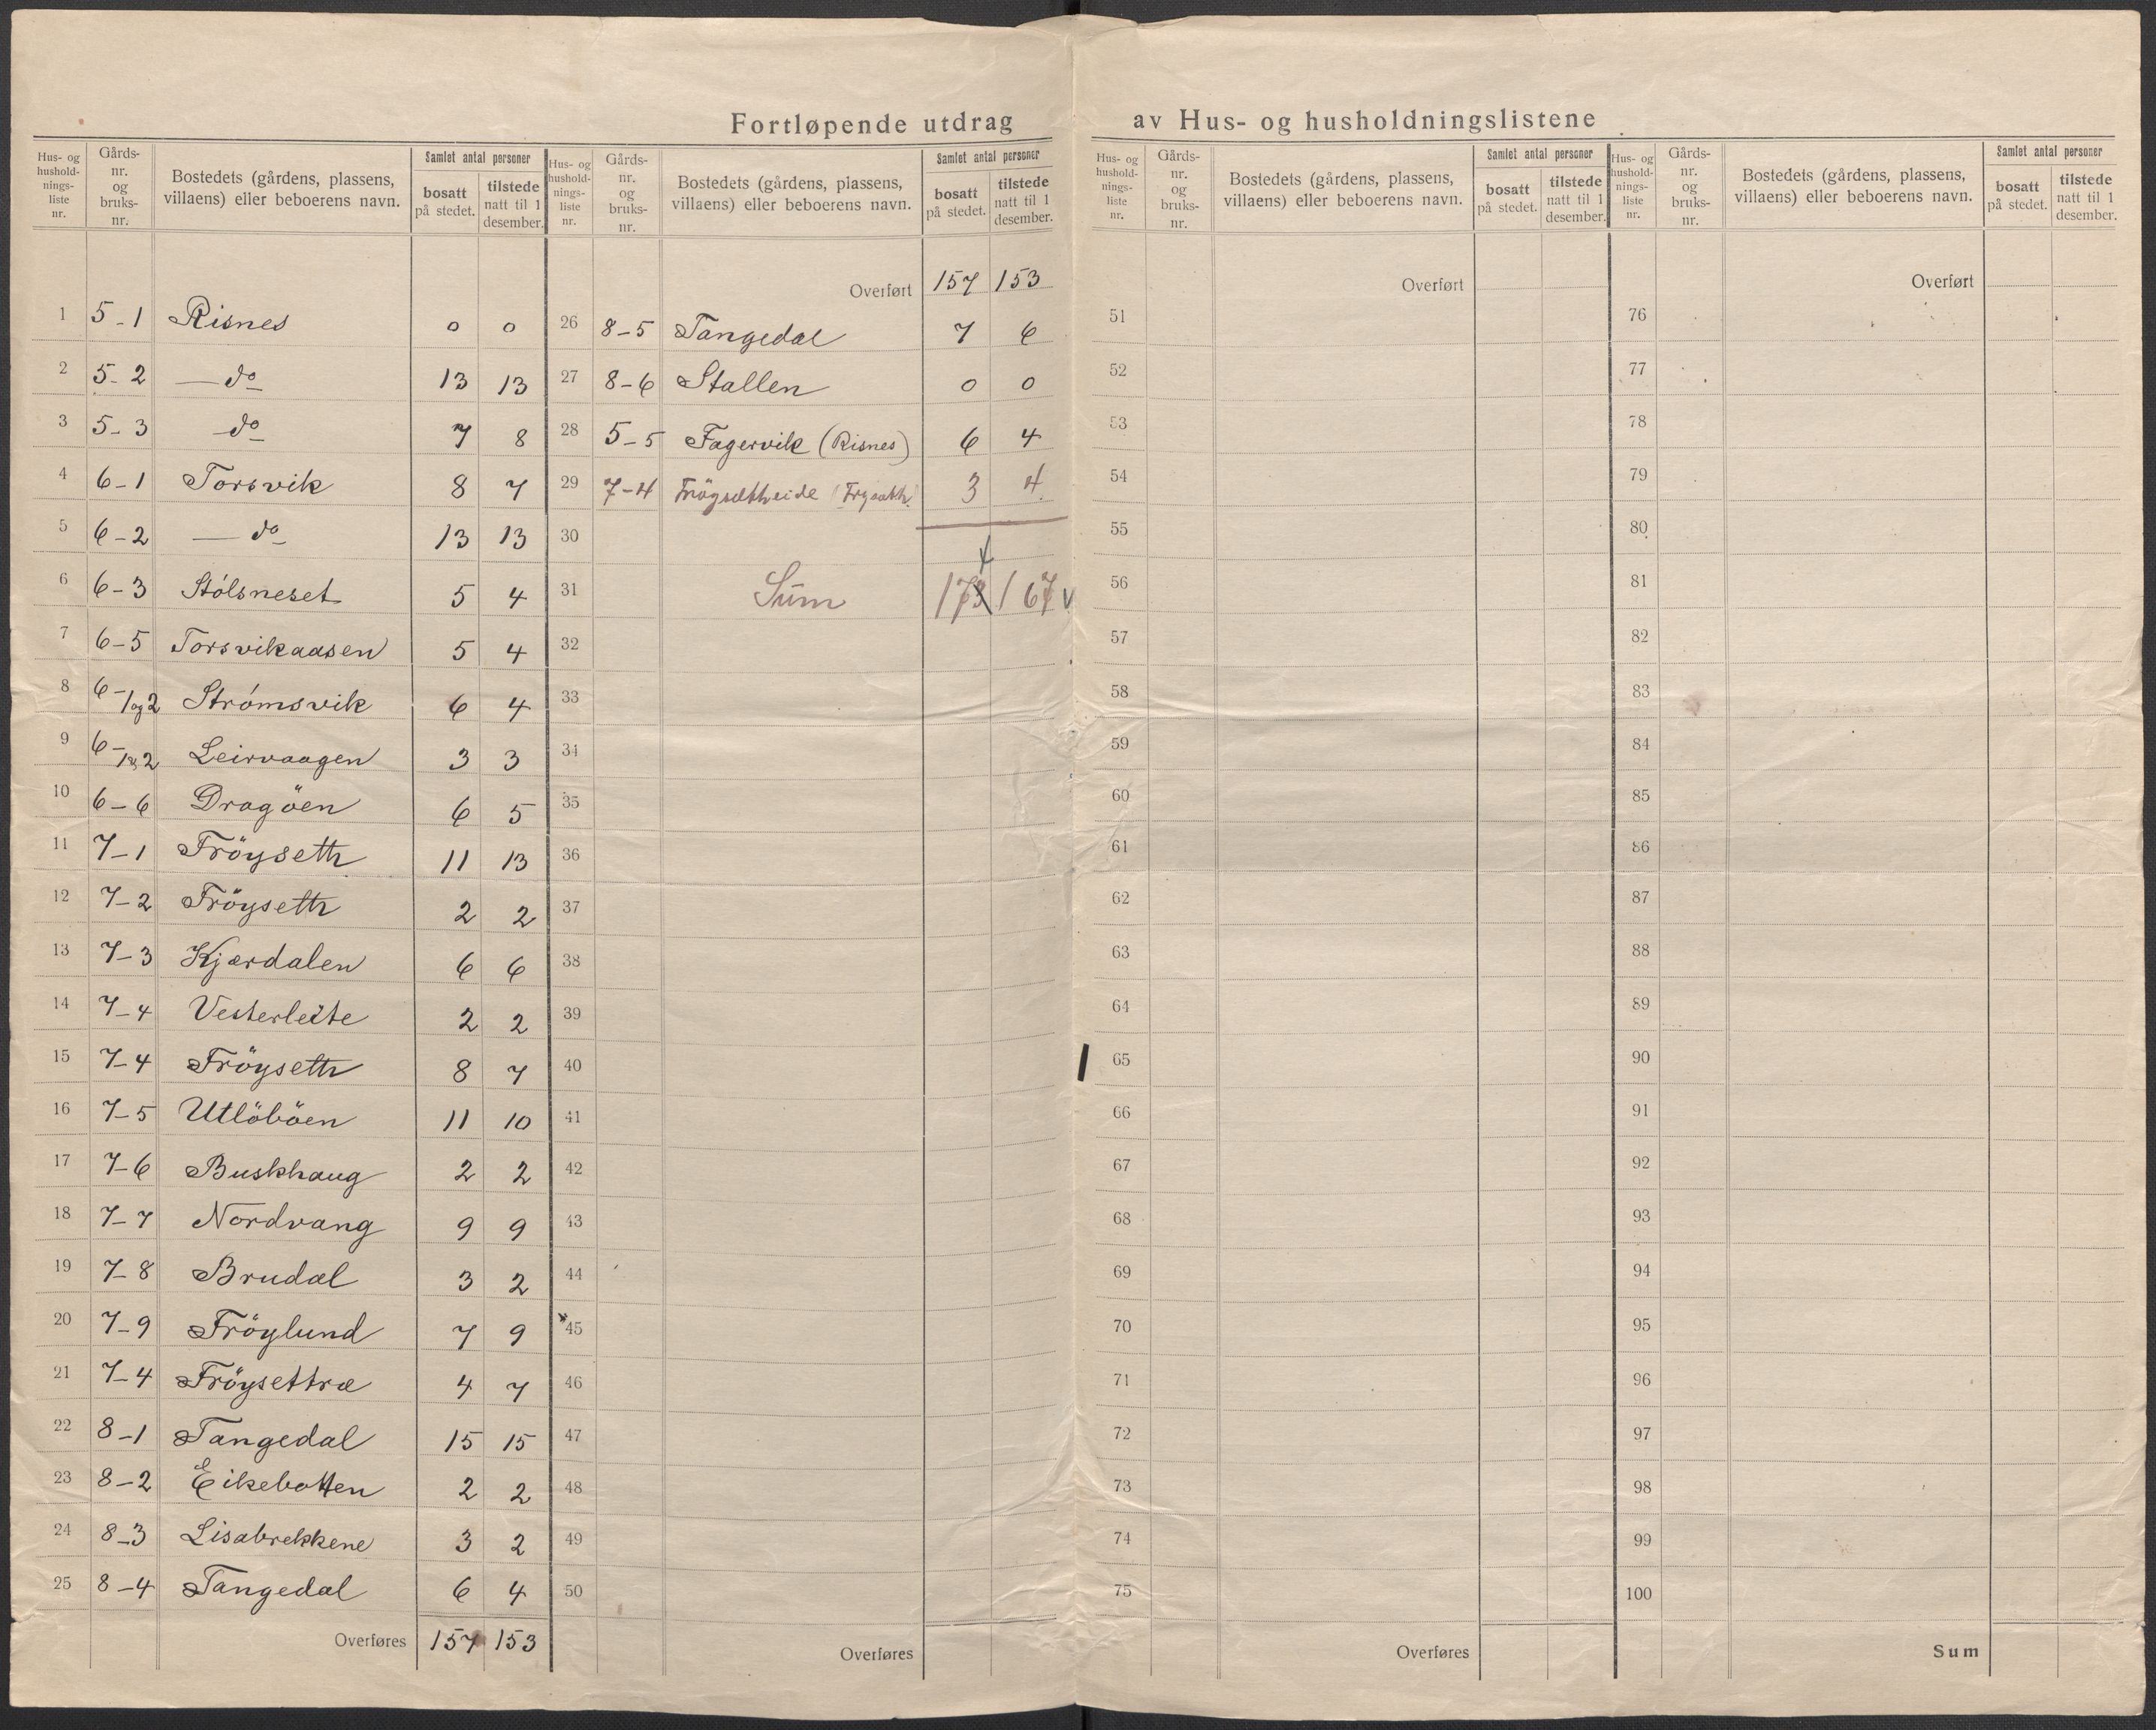 Fortløpende utdrag av Hus- og husholdningslistene
Hus- og husholdnings-liste nr. | Gårds-nr. og bruks-nr. | Bostedets (gårdens, plassens, villaens) eller beboerens navn. | Samlet antal personer | bosatt på stedet. | tilstede natt til 1 desember.
1 | 5-1 | Risnes | 0 | 0
2 | 5-2 | — do | 13 | 13
3 | 5-3 | do | 7 | 8
4 | 6-1 | Torsvik | 8 | 7
5 | 6-2 | — do | 13 | 13
6 | 6-3 | Stólsneset | 5 | 4
7 | 6-5 | Torsvikaasen | 5 | 4
8 | 6-1og2 | Strómsvik | 6 | 4
9 | 6-1&2 | Leirvaagen | 3 | 3
10 | 6-6 | Dragöen | 6 | 5
11 | 7-1 | Fröyseth | 11 | 13
12 | 7-2 | Fröyseth | 2 | 2
13 | 7-3 | Kjærdalen | 6 | 6
14 | 7-4 | Vesterleite | 2 | 2
15 | 7-4 | Fröyseth | 8 | 7
16 | 7-5 | Utlöböen | 11 | 10
17 | 7-6 | Buskhaug | 2 | 2
18 | 7-7 | Nordvang | 9 | 9
19 | 7-8 | Brudal | 3 | 2
20 | 7-9 | Fröylund | 7 | 9
21 | 7-4 | Fröysettræ | 4 | 7
22 | 8-1 | Tangedal | 15 | 15
23 | 8-2 | Eikebotten | 2 | 2
24 | 8-3 | Lisabrekkene | 3 | 2
25 | 8-4 | Tangedal | 6 | 4
Overføres | 157 | 153
Hus- og husholdnings-liste nr. | Gårds-nr. og bruks-nr. | Bostedets (gårdens, plassens, villaens) eller beboerens navn. | Samlet antal personer | bosatt på stedet. | tilstede natt til 1 desember.
Overført | 157 | 153
26 | 8-5 | Tangedal | 7 | 6
27 | 8-6 | Stallen | 0 | 0
28 | 5-5 | Fagervik (Risnes) | 6 | 4
29 | 7-4 | Fröysettheide | 3 | 4
30
31 | Sum | 173 | 167
32
33
34
35
36
37
38
39
40
41
42
43
44
45
46
47
48
49
50
Overføres
Hus- og husholdnings-liste nr. | Gårds-nr. og bruks-nr. | Bostedets (gårdens, plassens, villaens) eller beboerens navn. | Samlet antal personer | bosatt på stedet. | tilstede natt til 1 desember.
Overført
51
52
53
54
55
56
57
58
59
60
61
62
63
64
65
66
67
68
69
70
71
72
73
74
75
Overføres
Hus- og husholdnings-liste nr. | Gårds-nr. og bruks-nr. | Bostedets (gårdens, plassens, villaens) eller beboerens navn. | Samlet antal personer | bosatt på stedet. | tilstede natt til 1 desember.
Overført
76
77
78
79
80
81
82
83
84
85
86
87
88
89
90
91
92
93
94
95
96
97
98
99
100
Sum